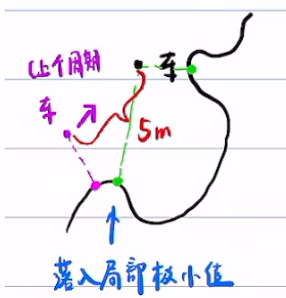 (上个周期
车
车
5m
落入局部极小值